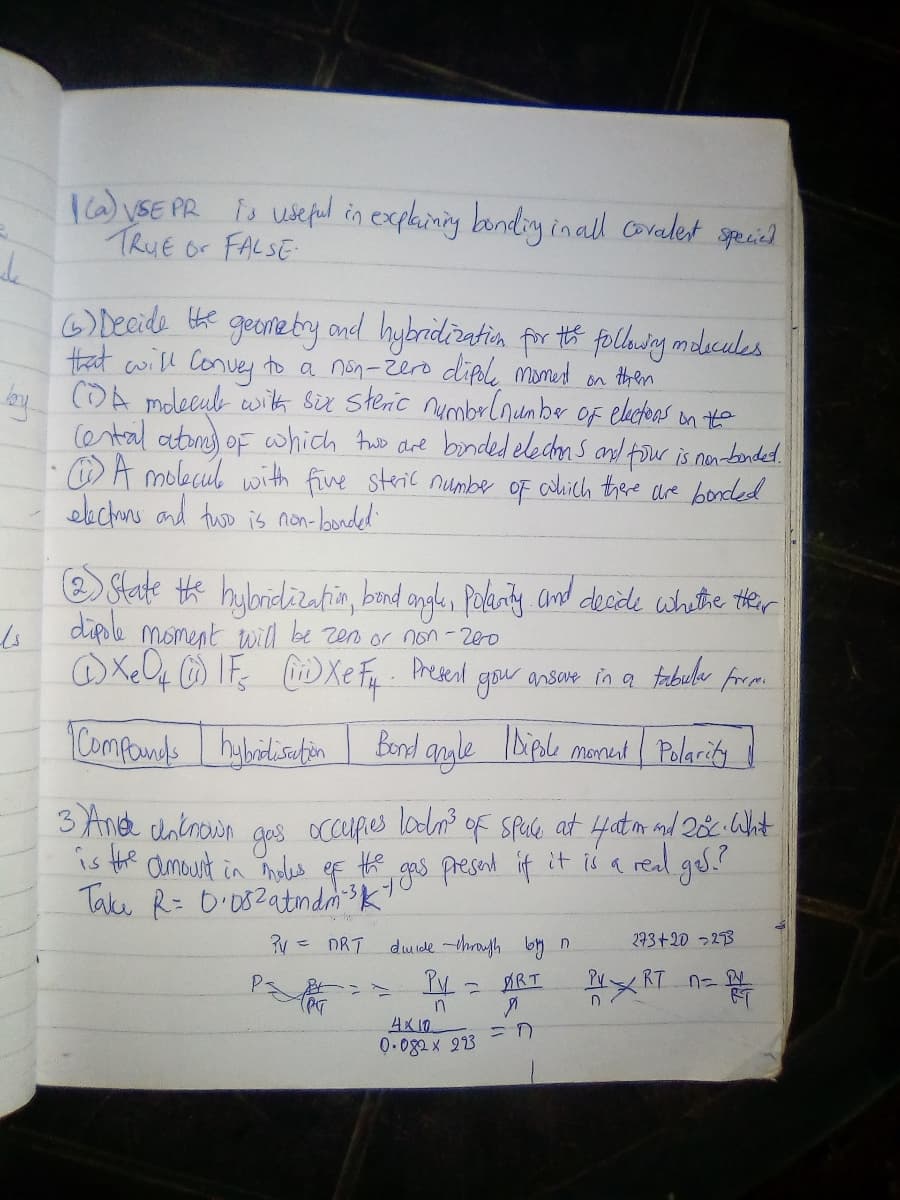 1(a) VSEPR is useful in explaining bonding in all covalent species
TRUE or FALSE.
(b) Decide the geometry and hybridization for the following molecules
that will convey to a non-zero dipole moment on them
(i) A molecule with six steric number (number of electrons on the
central atoms) of which two are bonded electrons and four is non-bonded.
(ii) A molecule with five steric number of which there are bonded
electrons and two is non-bonded.
(2) State the hybridization, bond angle, Polarity and decide whether their
dipole moment will be zero or non-zero
(i) XeO4 (ii) IF5 (iii) XeF4. Present your answer in a tabular form.
Compounds | hybridisation | Bond angle | Dipole moment | Polarity
3) An unknown gas occupies 10dm³ of space at 4atm and 20°C. What
is the amount in moles of the gas present if it is a real gas?
Take R = 0.082atmdm⁻³K⁻¹
PV = nRT divide through by n 273+20 = 293
P = = = PV/n = nRT/n PV/n × RT n = PV/RT
4×10/0.082×293 = n
by